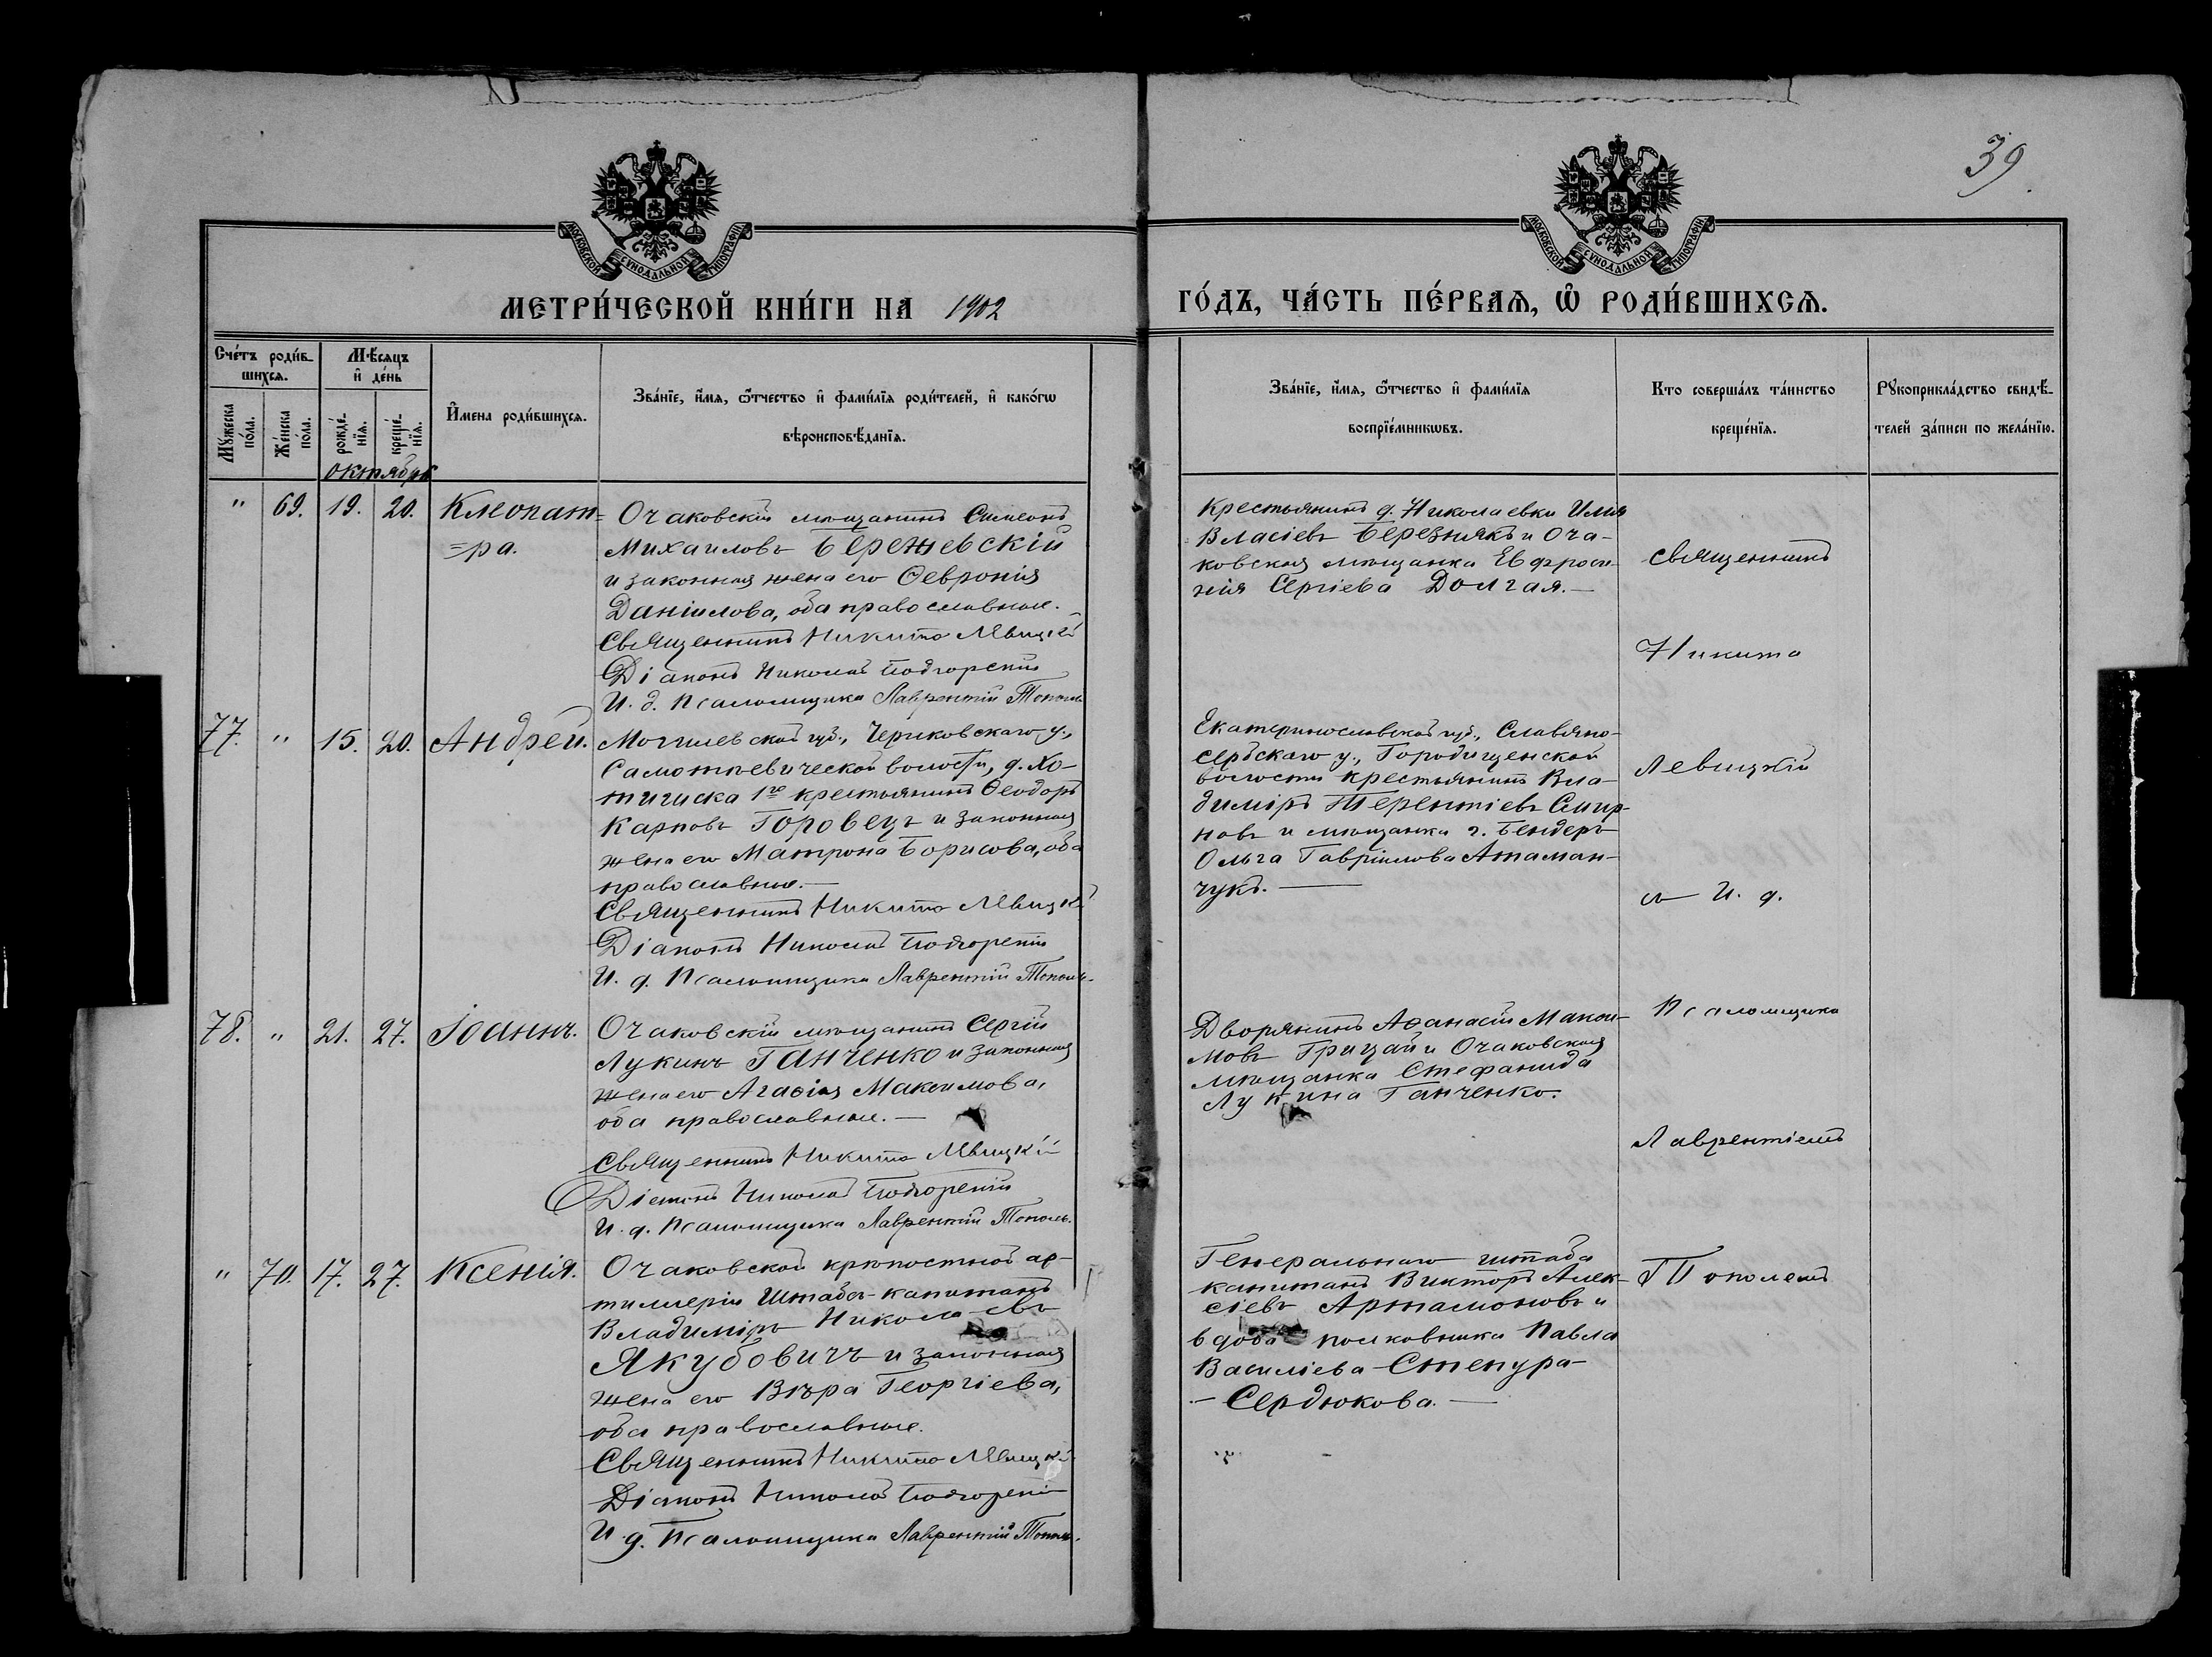 39
МОСКОВСКОЙ СУНОДАЛЬНОЙ ТИПОГРАФІИ
МОСКОВСКОЙ СУНОДАЛЬНОЙ ТИПОГРАФІИ
МЕТРИ́ЧЕСКОЙ КНИ́ГИ НА 1902
ГО́ДЪ, ЧА́СТЬ ПЕ́РВАѦ, Ѡ҆ РОДИ́ВШИХСѦ.
Сче́тъ роди́в-
шихсѧ.
Мꙋ́жеска по́ла.
Же́нска по́ла.
Мѣ́сѧцъ
и҆ де́нь
рожде́-
нїѧ.
креще́-
нїѧ.
И҆мена роди́вшихсѧ.
Зва́нїе, и҆́мѧ, ѻ҆́тчество и҆ фами́лїѧ роди́телей, и҆ како́гѡ
вѣроисповѣ́данїѧ.
Зва́нїе, и҆́мѧ, ѻ҆́тчество и҆ фами́лїѧ
воспрїе́мникѡвъ.
Кто соверша́лъ та́инство
креще́нїѧ.
Рꙋкоприкла́дство свидѣ́-
телей за́писи по жела́нїю.
октябрь
" 69. 19. 20. Клеопат=
=ра.
Очаковскій мѣщанинъ Симеонъ
Михаиловъ Бережевскій
и законная жена его Ѳевронія
Даніилова, оба православные.
Священникъ Никита Левицкій
Діаконъ Николай Подгорскій
И. д. Псаломщика Лаврентій Тополь
Крестьянинъ д. Николаевки Илія
Власіевъ Березнякъ и Оча-
ковская мѣщанка Евфроси-
нія Сергіева Долгая.—
77. " 15. 20. Андрей.
Могилевской губ., Чериковскаго у.,
Самотѣевической волости, д. Хо-
тигиска 1го крестьянинъ Ѳеодоръ
Карповъ Горовецъ и законная
жена его Матрона Борисова, оба
православные.—
Священникъ Никита Левицкій
Діаконъ Николай Подгорскій
И. д. Псаломщика Лаврентій Тополь.
Екатеринославской губ., Славяно-
сербскаго у., Городищенской
волости крестьянинъ Вла-
диміръ Терентіевъ Смир-
новъ и мѣщанка г. Бендеръ
Ольга Гавріилова Атаман-
чукъ.—
78. " 21. 27. Іоаннъ.
Очаковскій мѣщанинъ Сергій
Лукинъ Ганченко и законная
жена его Агаѳія Максимова,
оба православные.—
Священникъ Никита Левицкій
Діаконъ Николай Подгорскій
И. д. Псаломщика Лаврентій Тополь.
Дворянинъ Аѳанасій Макси-
мовъ Грицай и Очаковская
мѣщанка Стефанида
Лукина Ганченко.
" 70. 17. 27. Ксенія.
Очаковской крѣпостной ар-
тиллеріи Штабсъ-капитанъ
Владиміръ Николаевъ
Якубовичъ и законная
жена его Вѣра Георгіева,
оба православные.
Священникъ Никита Левицкій
Діаконъ Николай Подгорскій
И. д. Псаломщика Лаврентій Тополь.
Генеральнаго штаба
капитанъ Викторъ Алек-
сіевъ Артамоновъ и
вдова полковника Павла
Василіева Степура-
- Сердюкова.—
Священникъ
Никита
Левицкій
съ И. д.
Псаломщика
Лаврентіемъ
Тополемъ